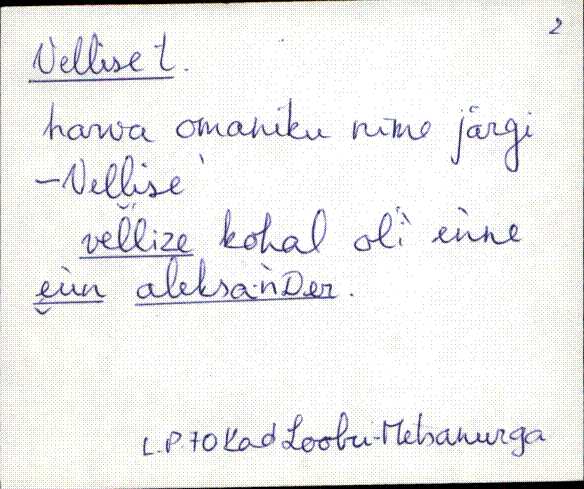 2
Vellise t.
harva omaniku nime järgi
-Vellise
vellize kohal oli ènne
eùn aleksànDer.
L.P. 70 Kad Loobu-Metsanurga